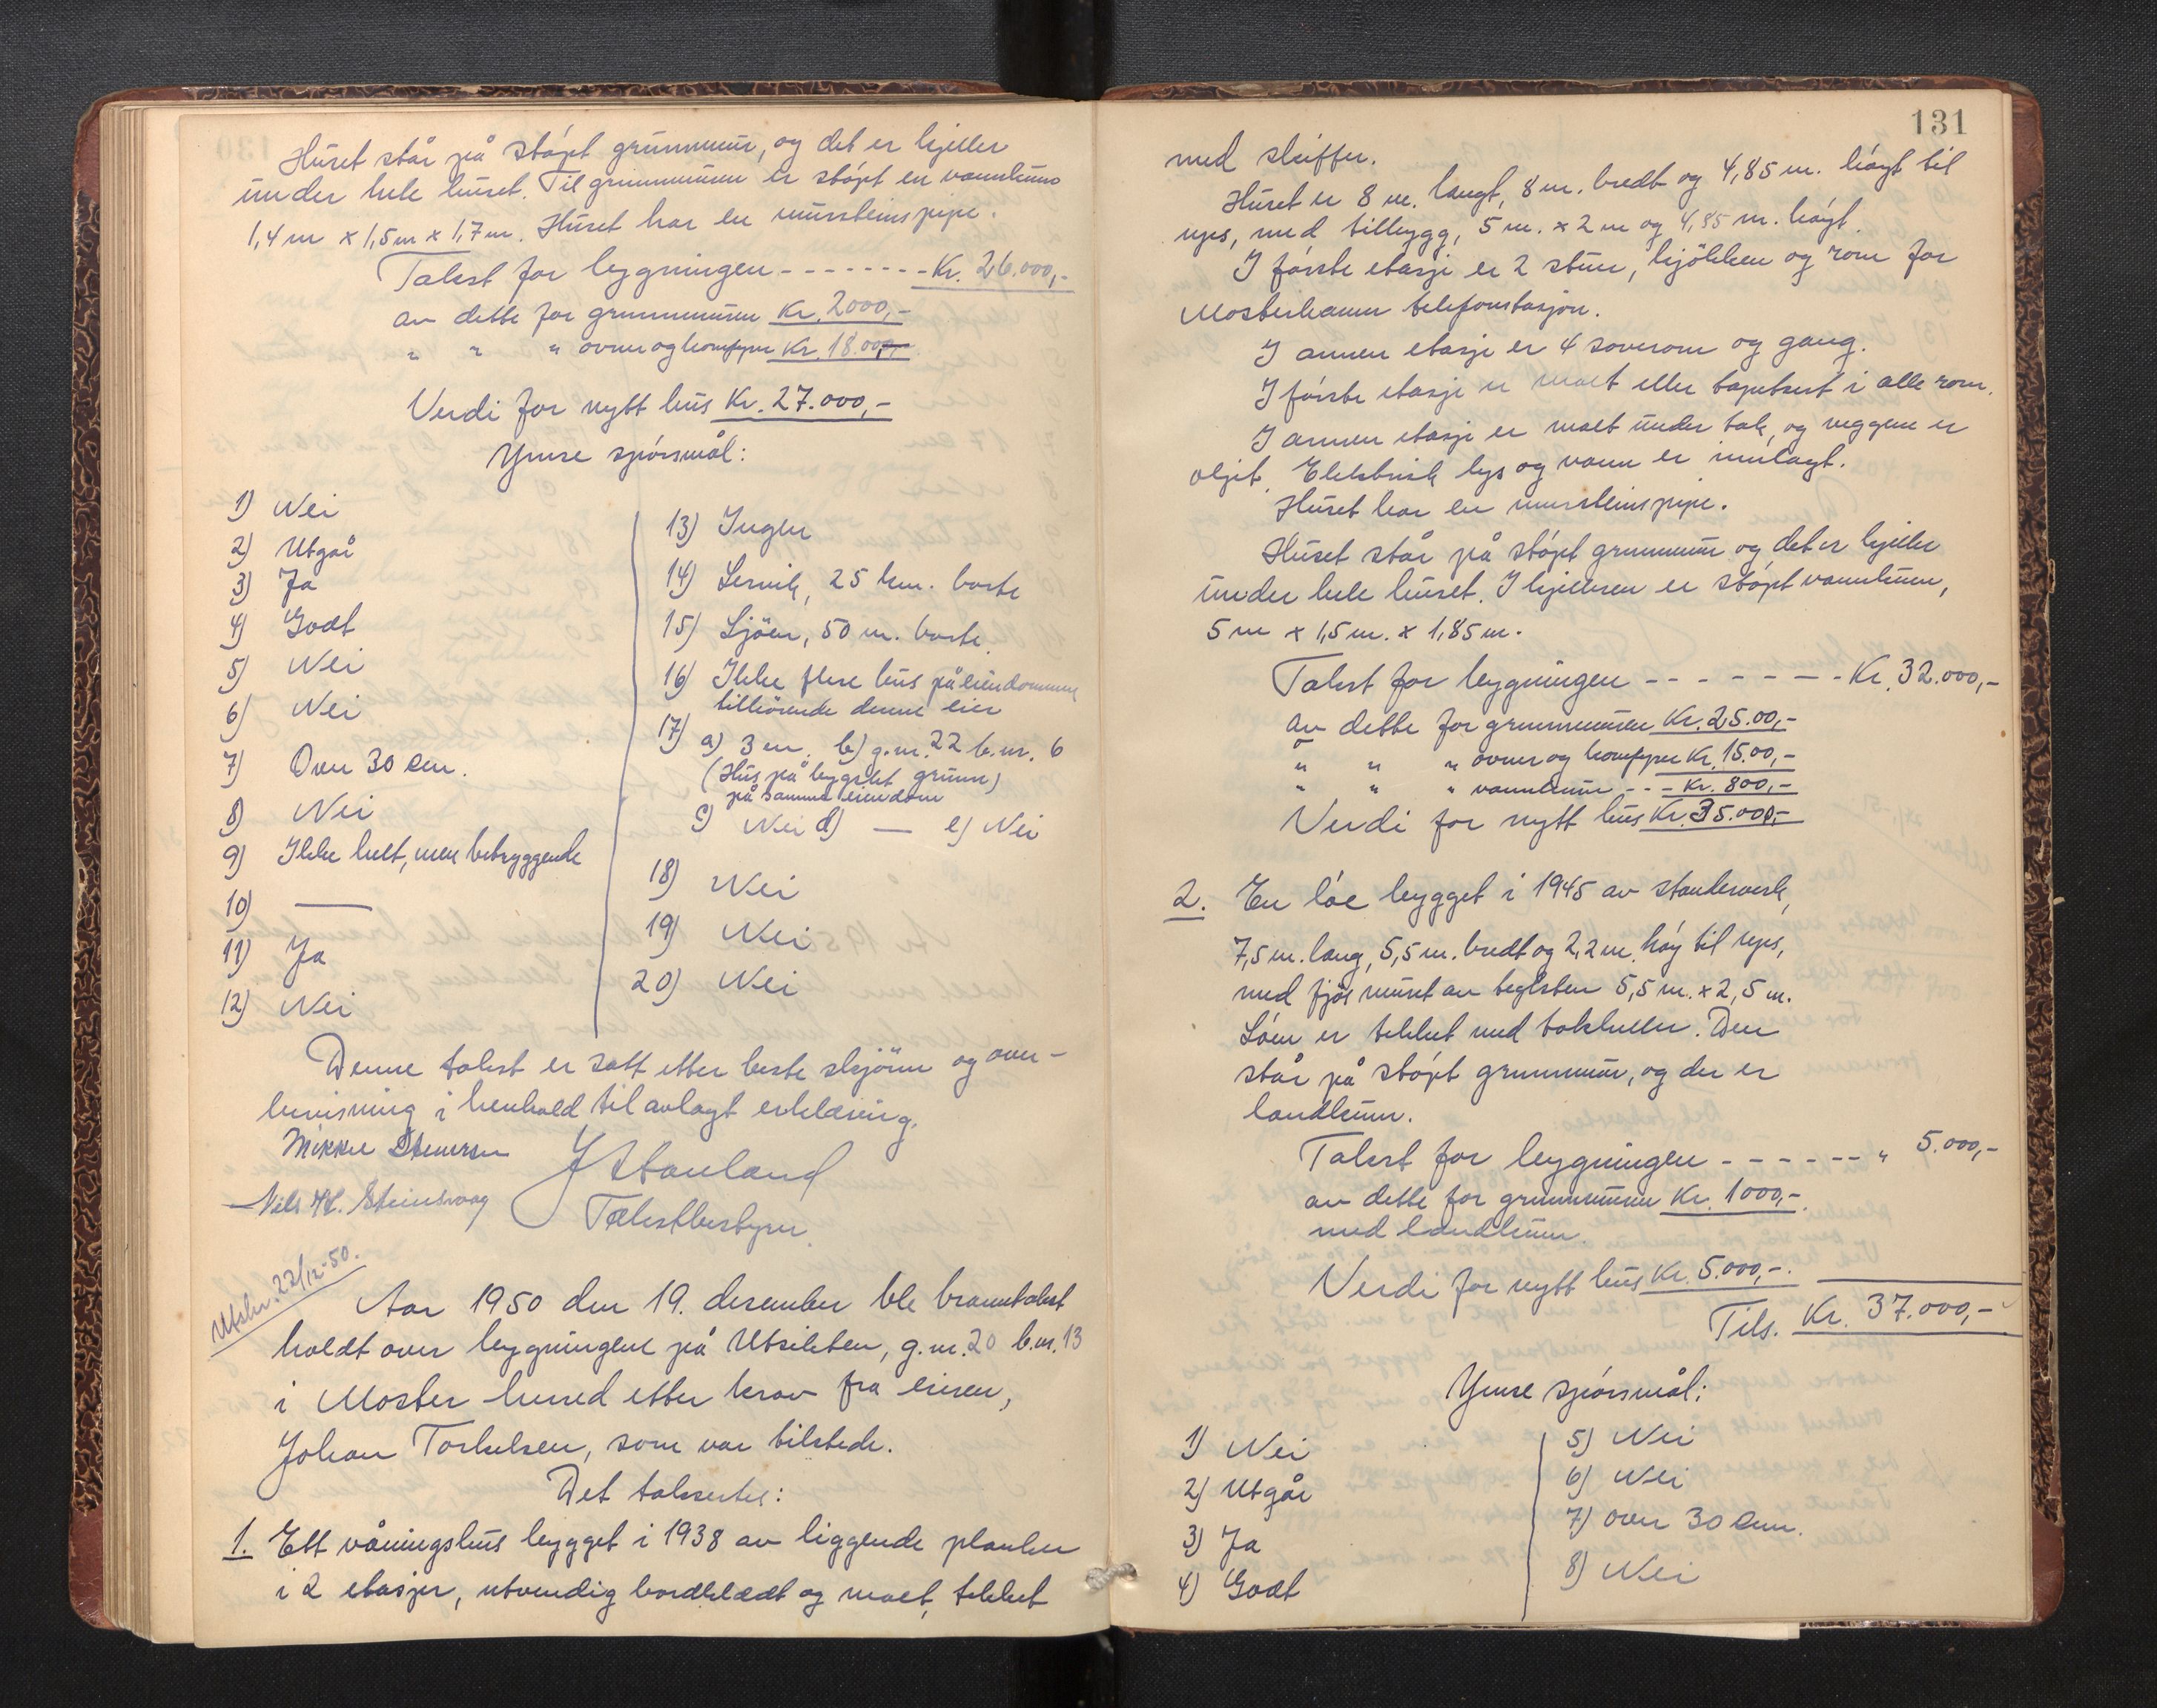 Huset står på støpt grunnmur, og det er kjeller
under hele huset. Til grunnmuren er støpt en vannkum
1,4 m x 1,5 m x 1,7 m. Huset har en mursteinspipe.
Takst for bygningen - - - - - - - - Kr. 26.000,-
av dette for grunnmuren Kr. 2000,-
" " " ovner og komfyrer Kr. 18.00,-
Verdi for nytt hus Kr. 27.000,-
Ymse spørsmål:
1) Nei
2) Utgår
3) Ja
4) Godt
5) Nei
6) Nei
7) Over 30 cm.
8) Nei
9) Ikke helt, men betryggende
10) —
11) Ja
12) Nei
13) Ingen
14) Lervik, 25 km. borte
15) Sjøen, 50 m. borte.
16) Ikke flere hus på eiendommen
tilhørende denne eier
17) a) 3 m. b) g.nr. 22 b.nr. 6
(Hus på bygslet grunn)
på samme eiendom
c) Nei d) — e) Nei
18) Nei
19) Nei
20) Nei
Denne takst er satt etter beste skjønn og over-
bevisning i henhold til avlagt erklæring.
Mikkel Stenersen J Stauland
Nils H. Steinsvaag Takstbestyrer.
Utskr. 22/12-50.
Aar 1950 den 19. desember ble branntakst
holdt over bygningene på Utsikten, g.nr. 20 b.nr. 13
i Moster herred etter krav fra eieren,
Johan Torkelsen, som var tilstede.
Det taksertes:
1. Ett våningshus bygget i 1938 av liggende planker
i 2 etasjer, utvendig bordkledt og malt, tekket
131
med skiffer.
Huset er 8 m. langt, 8 m. bredt og 4,85 m. høyt til
reps, med tilbygg, 5 m. x 2 m og 4,85 m. høyt.
I første etasje er 2 stuer, kjøkken og rom for
Mosterhamn telefonstasjon.
I annen etasje er 4 soverom og gang.
I første etasje er malt eller tapetsert i alle rom.
I annen etasje er malt under tak, og veggene er
oljet. Elektrisk lys og vann er innlagt.
Huset har en mursteinspipe.
Huset står på støpt grunnmur og det er kjeller
under hele huset. I kjelleren er støpt vannkum,
5 m x 1,5 m. x 1,85 m.
Takst for bygningen - - - - - - - Kr. 32.000,-
av dette for grunnmuren Kr. 25.00,-
" " " ovner og komfyrer Kr. 15.00,-
" " " vannkum - - - Kr. 800,-
Verdi for nytt hus Kr. 35.000,-
2. En løe bygget i 1945 av stenderverk,
7,5 m. lang, 5,5 m. bredt og 2,2 m. høy til reps,
med fjøs muret av teglsten 5,5 m. x 2,5 m.
Løen er tekket med takheller. Den
står på støpt grunnmur, og der er
landkum.
Takst for bygningen - - - - - - " 5.000,-
av dette for grunnmuren Kr. 1000,-
med landkum.
Verdi for nytt hus Kr. 5.000,-.
Tils. Kr. 37.000,-
Ymse spørsmål:
1) Nei
2) Utgår
3) Ja
4) Godt
5) Nei
6) Nei
7) over 30 cm.
8) Nei